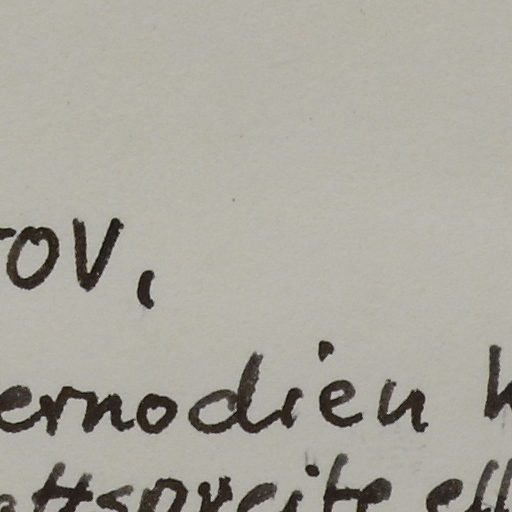 TOV,
ernodien h
attspreite ell